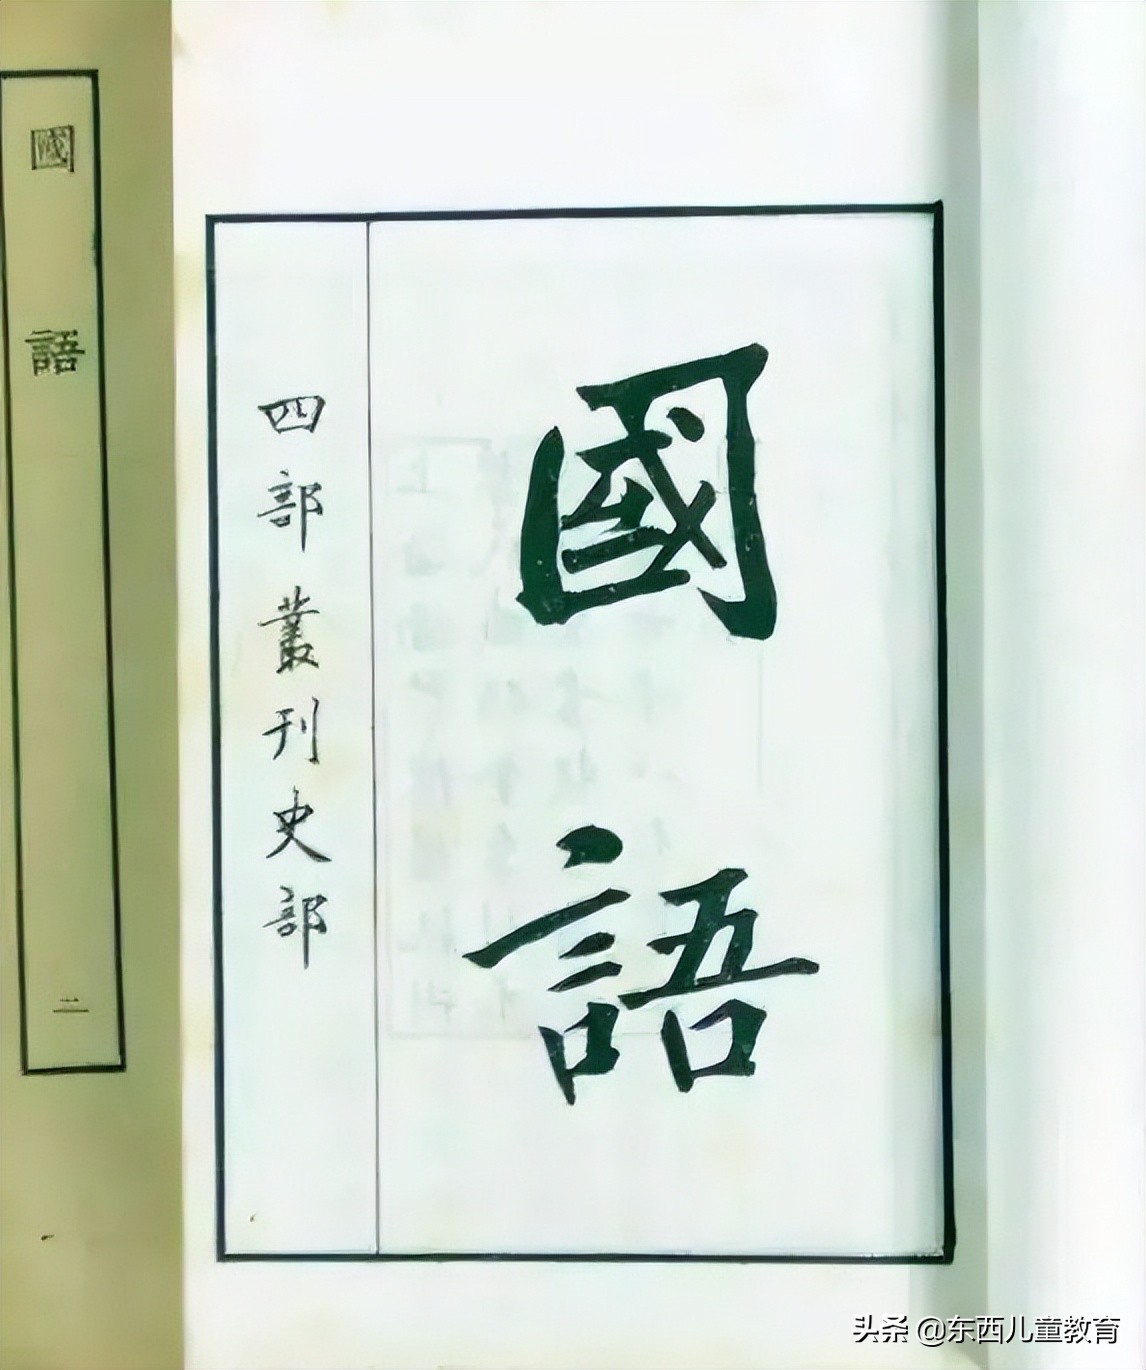 國語
四部叢刊史部
國語
二
头条 @东西儿童教育